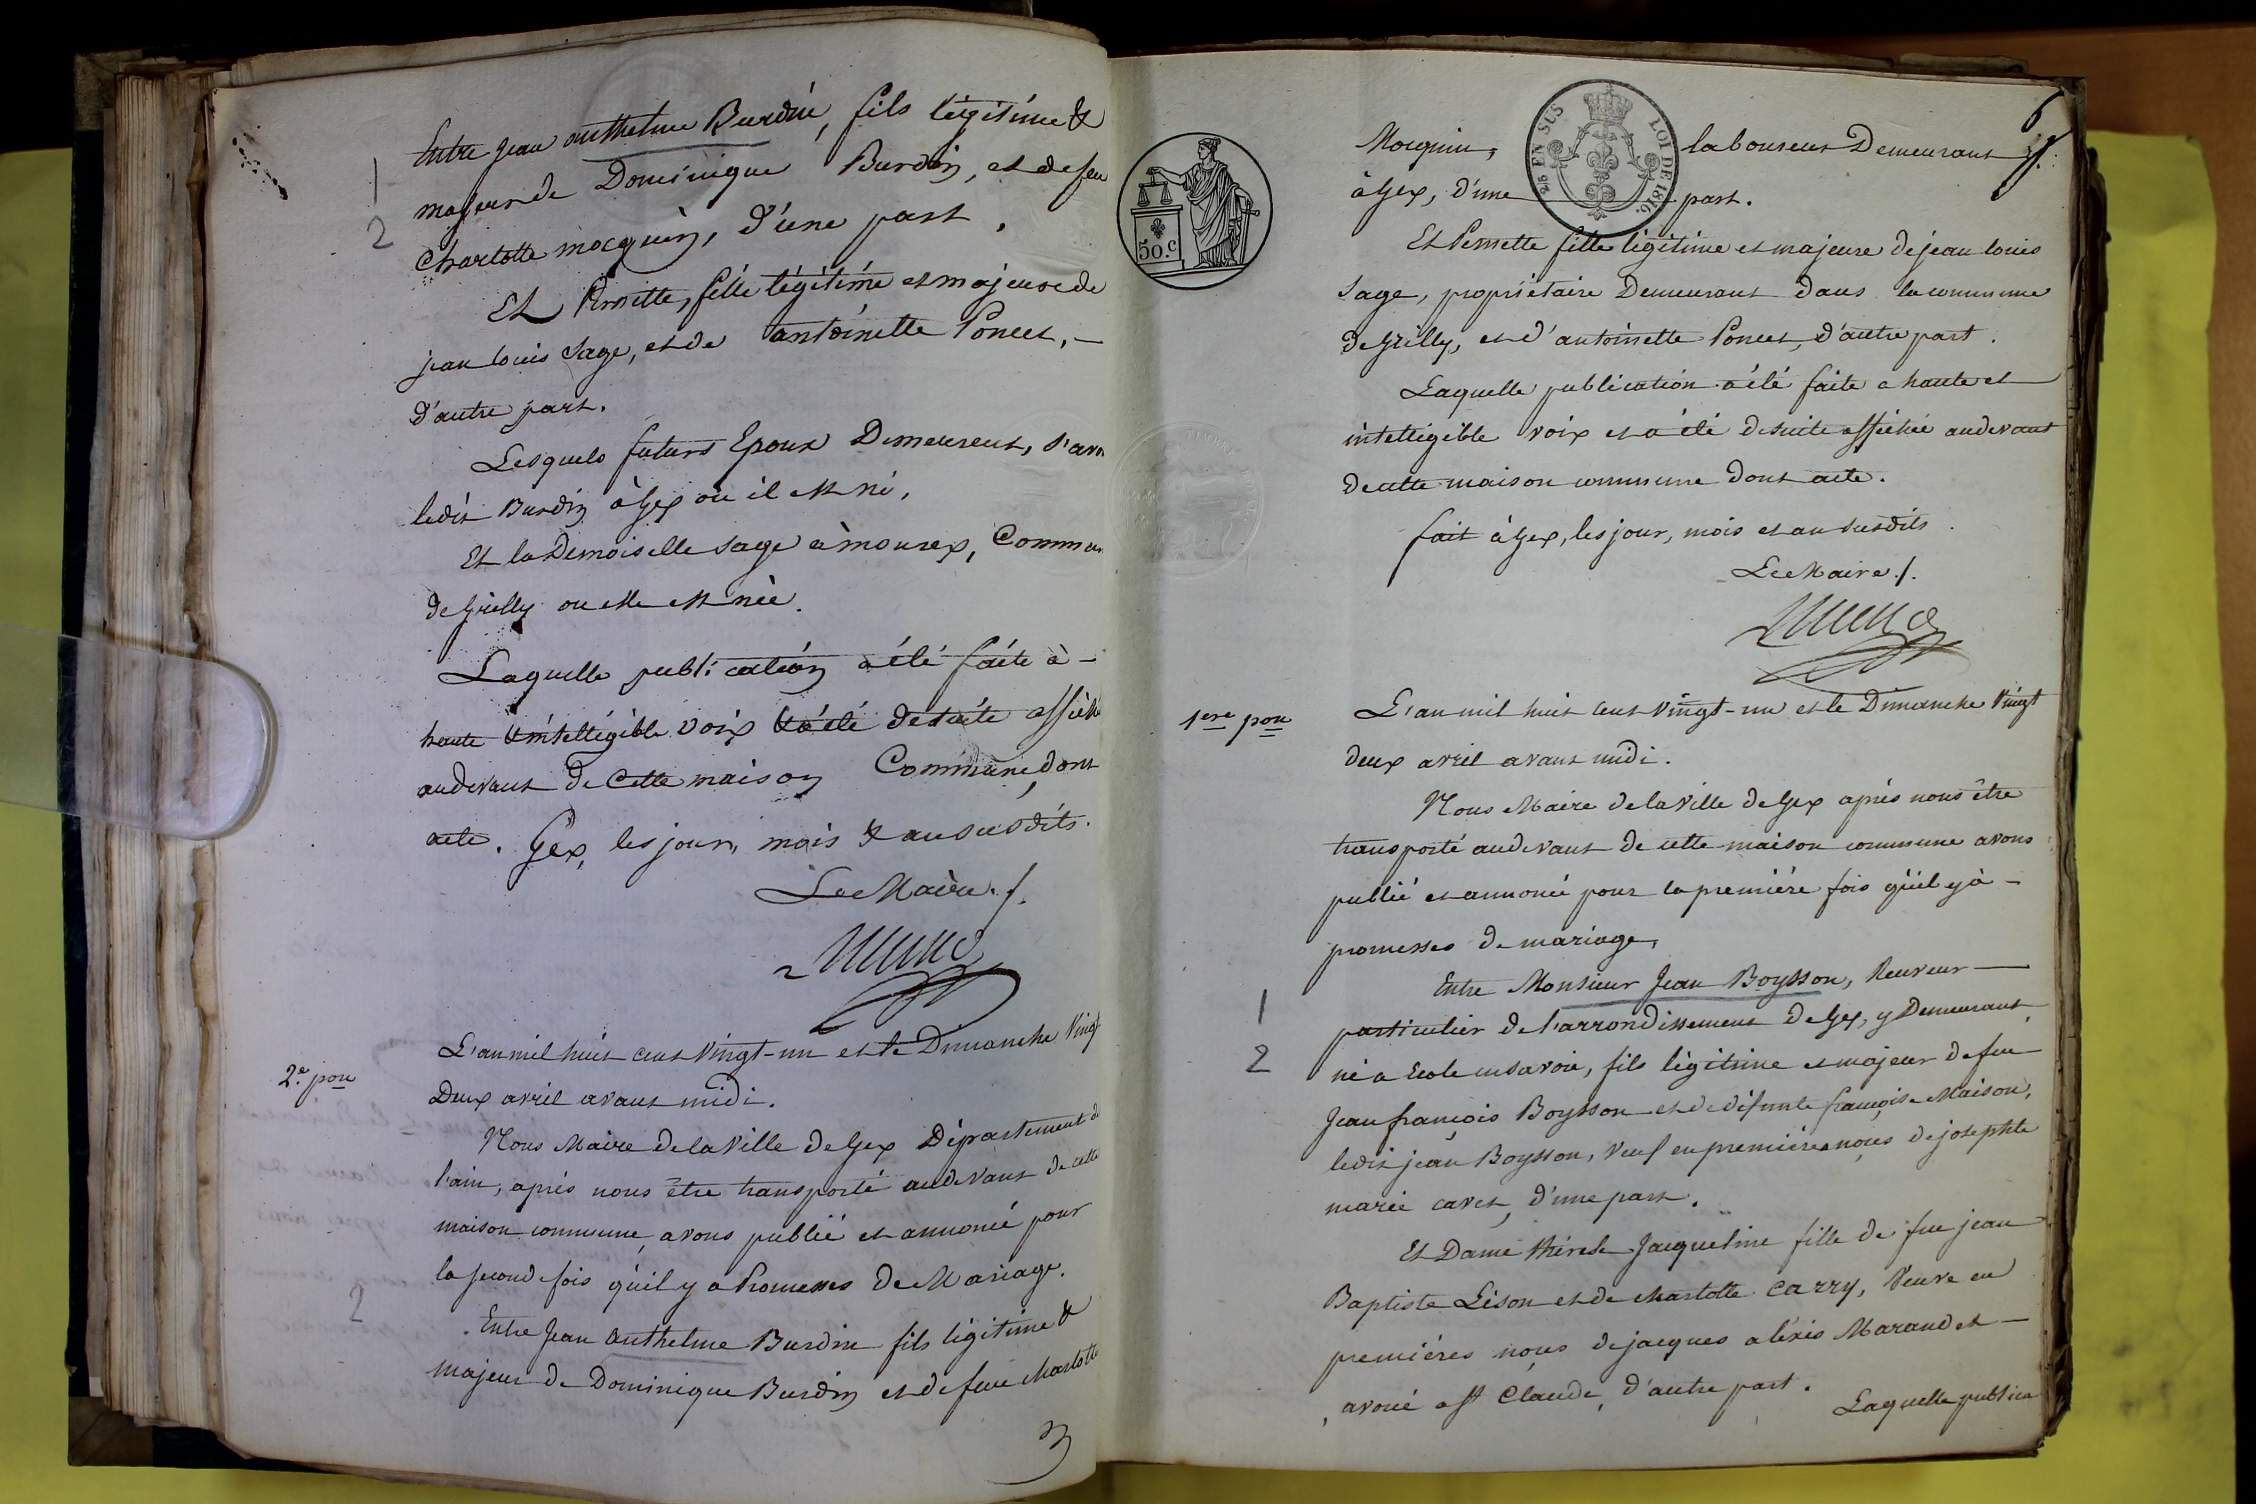 1
2
Entre jean anthelme Burdin, fils légitime &
majeur de Dominique Burdin, et de feu
charlotte mocquin, d'une part,
Et Pernette, fille légitime et majeure de
jean louis Sage, et de antoinette Poncet, -
d'autre part.
Lesquels futurs Epoux Demeurent, s'avoir
ledit Burdin à Gex où il est né,
Et la Demoiselle Sage à mourex, Commune
de Grilly ou elle est née.
Laquelle publication a été faite à -
haute & intelligible voix & a été desuite affiché
audevant de Cette maison Commune, dont
acte. Gex, les jour, mois & an susdits.
Le Maire./.
2.e pon
L'an mil huit cent vingt-un et le Dimanche Vingt
Deux avril avant midi.
Nous Maire de la Ville de Gex Département de
l'ain, après nous être transporté audevant de cette
maison commune, avons publié et annoncé pour
la seconde fois qu'il y a Promesses de Mariage.
2
Entre Jean Anthelme Burdin fils légitime &
majeur de Dominique Burdin et de feue charlotte
6
Mocquin, laboureur Demeurant
à Gex, d'une part.
25 EN SUS
LOI DE 1816.
50.c
Et Pernette fille légitime et majeure de jean louis
Sage, propriétaire Demeurant dans la commune
de Grilly, et d'antoinette Poncet, d'autre part.
Laquelle publication a été faite a haute et
intelligible voix et a été desuite affichée audevant
de cette maison commune dont acte.
fait à Gex, les jour, mois et an susdits.
Le Maire./.
1ere pon
L'an mil huit cent vingt-un et le Dimanche Vingt
deux avril avant midi.
Nous Maire de la Ville de Gex après nous être
transporté audevant de cette maison commune avons
publié et annoncé pour la première fois qu'il y à -
promesses de mariage,
1
2
Entre Monsieur Jean Boysson, Receveur
particulier de l'arrondissement de Gex, y Demeurant,
né a Ecole en savoie, fils légitime et majeur de feu
Jean françois Boysson et de défunte françoise Maison,
ledit jean Boysson, Veuf en premières noces de josephte
marie cavet, d'une part.
Et Dame thérese Jacqueline fille de feu jean
Baptiste Lison et de charlotte carry, Veuve en
premières noces de jacques aléxis Maraudet -
avoué a St Claude, d'autre part.
Laquelle publica